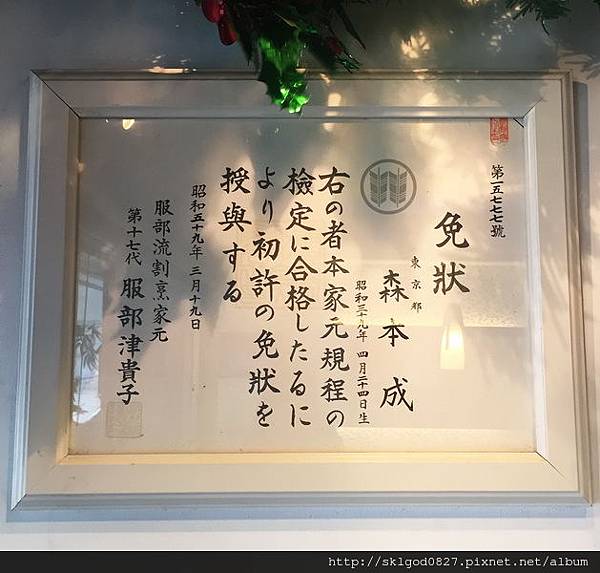 第一五七七七號
免狀
東京都
森本成
昭和三十九年 四月二十四日生
右の者本家元規程の
檢定に合格したるに
より初許の免狀を
授與する
昭和五十九年 三月十九日
服部流割烹家元
第十七代 服部津貴子
http://sklgod0827.pixnet.net/album